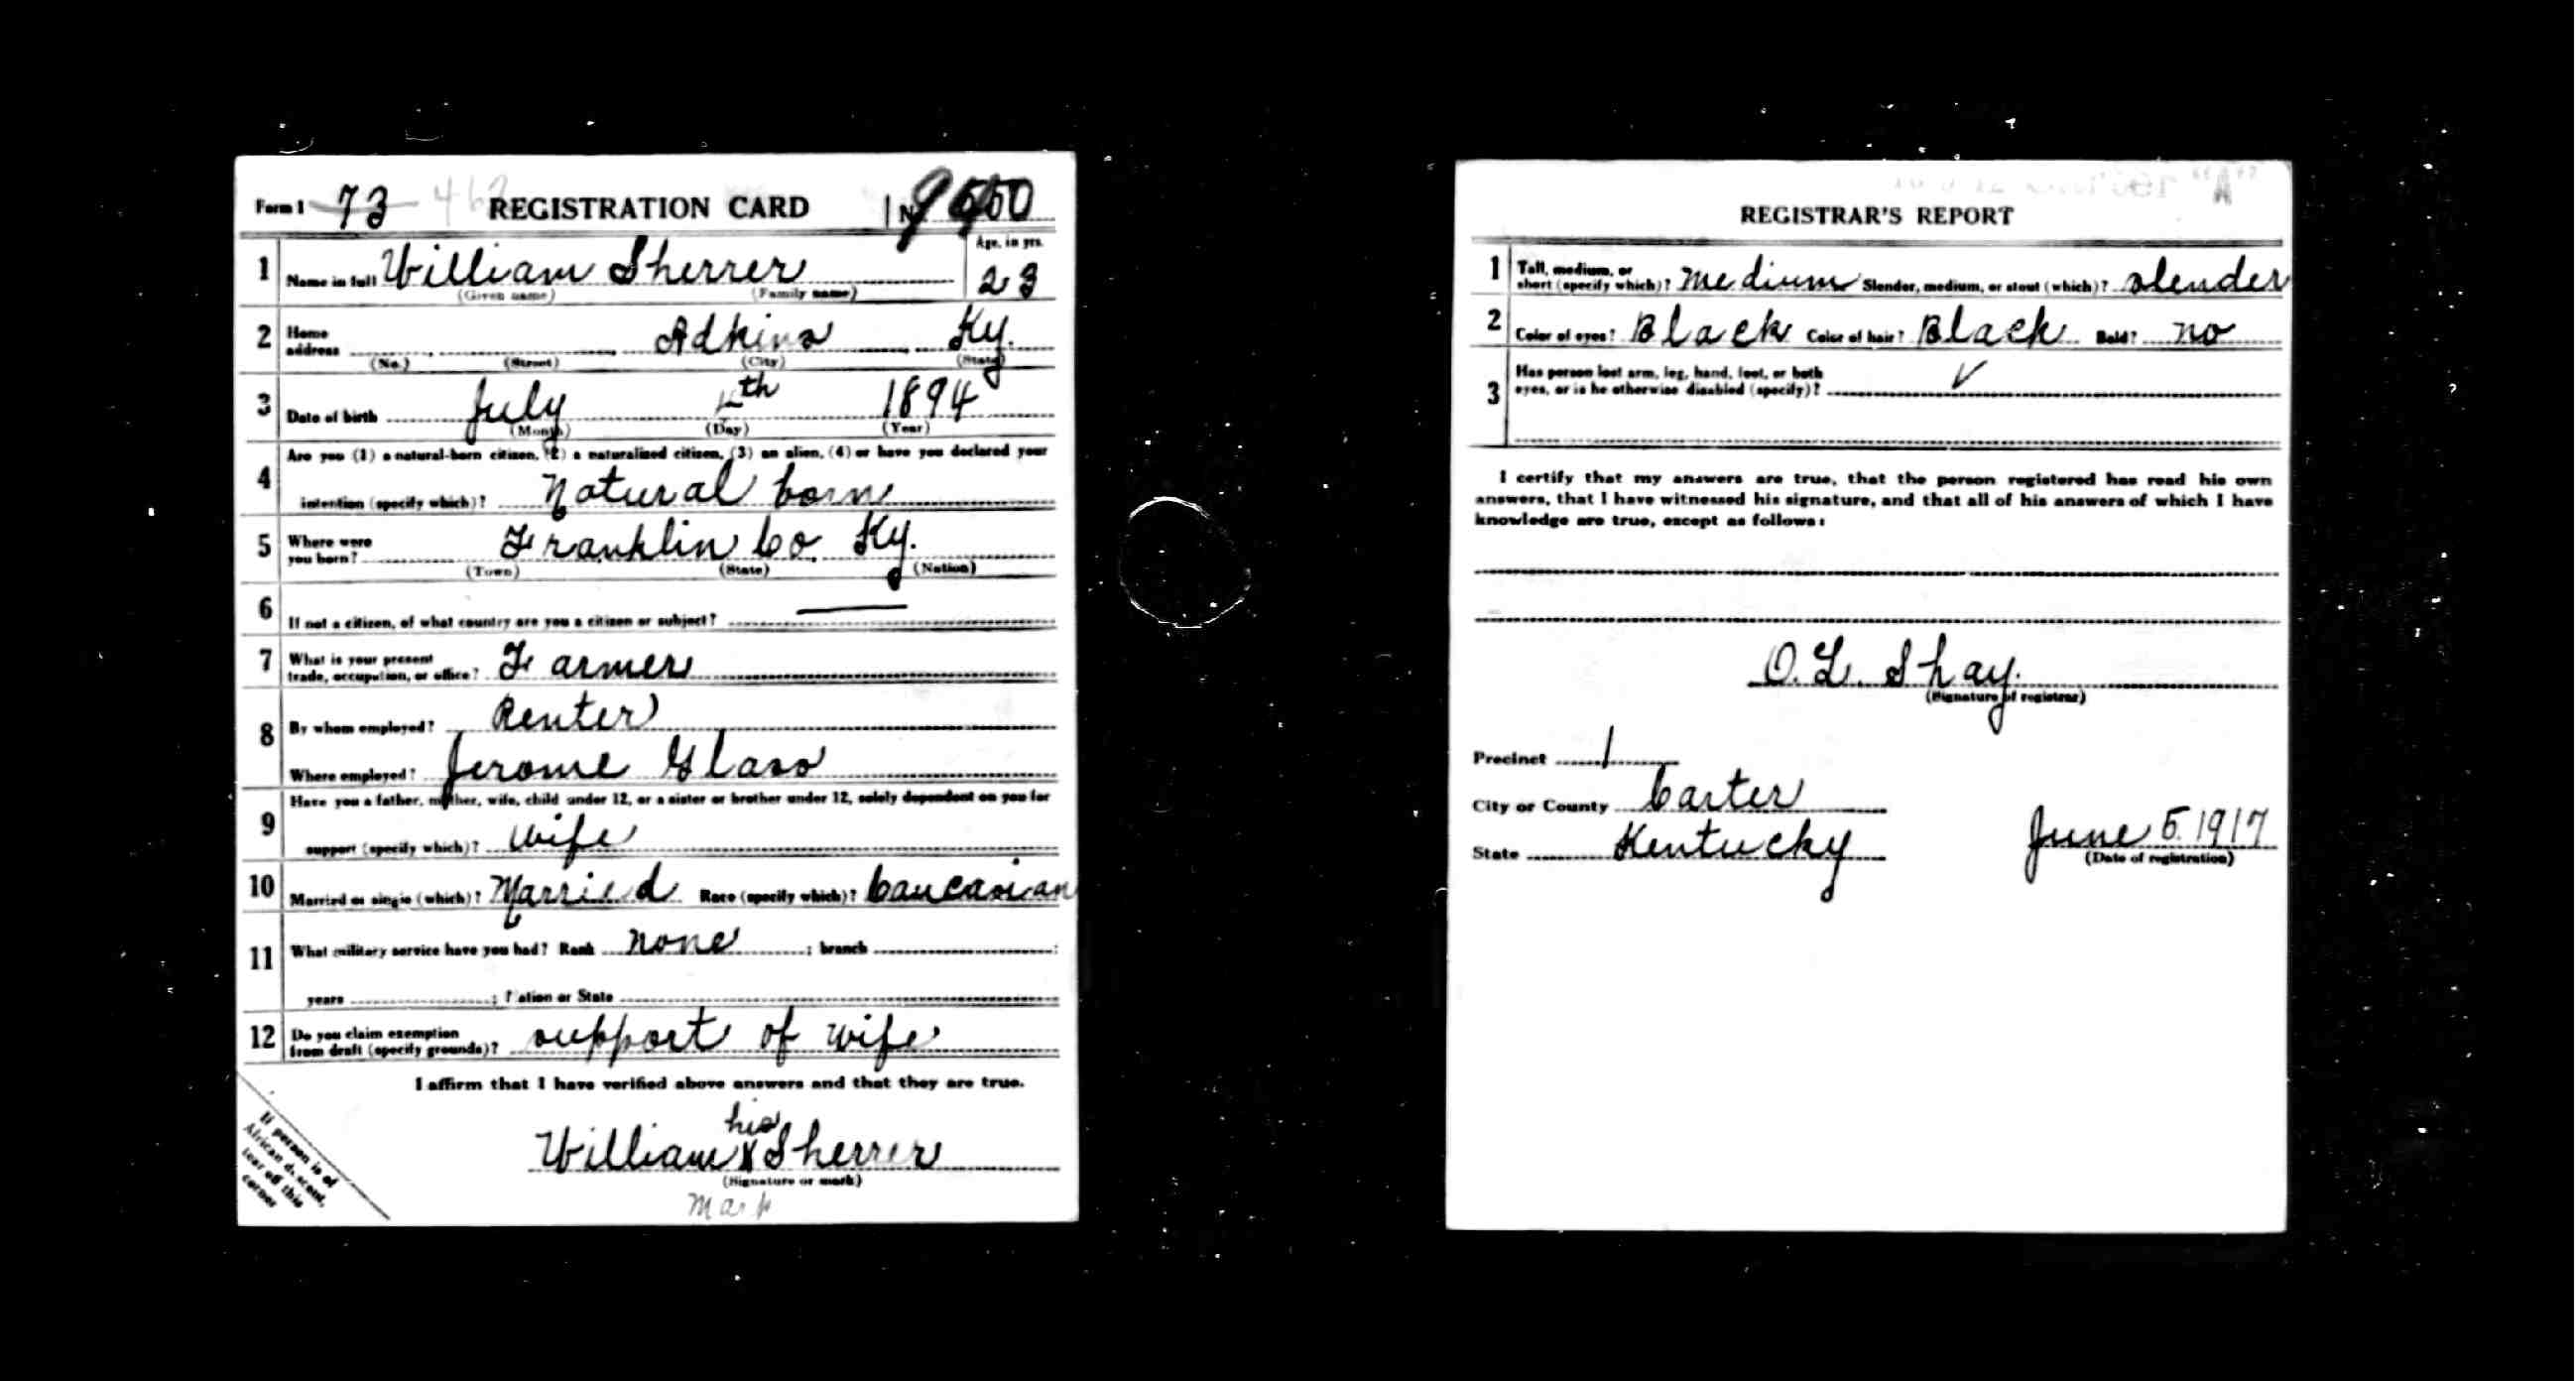 Form 1 73 462 REGISTRATION CARD No.
1 Name in full William Sherrer Age, in yrs. 23
(Given name) (Family name)
2 Home address Adkins Ky.
(No.) (Street) (City) (State)
3 Date of birth July th 1894
(Month) (Day) (Year)
4 Are you (1) a natural-born citizen, (2) a naturalized citizen, (3) an alien, (4) or have you declared your
intention (specify which)? Natural born
5 Where were you born? Franklin Co Ky.
(Town) (State) (Nation)
6 If not a citizen, of what country are you a citizen or subject? —
7 What is your present trade, occupation, or office? Farmer
8 By whom employed? Renter
Where employed? Jerome Glass
9 Have you a father, mother, wife, child under 12, or a sister or brother under 12, solely dependent on you for
support (specify which)? Wife
10 Married or single (which)? Married Race (specify which)? Caucasian
11 What military service have you had? Rank none ; branch ;
years ; Nation or State
12 Do you claim exemption from draft (specify grounds)? support of wife
I affirm that I have verified above answers and that they are true.
his
William X Sherrer
(Signature or mark)
Mark
If person is of
African descent,
tear off this
corner
REGISTRAR'S REPORT
1 Tall, medium, or short (specify which)? Medium Slender, medium, or stout (which)? slender
2 Color of eyes? Black Color of hair? Black Bald? no
3 Has person lost arm, leg, hand, foot, or both
eyes, or is he otherwise disabled (specify)? ✓
I certify that my answers are true, that the person registered has read his own
answers, that I have witnessed his signature, and that all of his answers of which I have
knowledge are true, except as follows:
O. L. Shay.
(Signature of registrar)
Precinct 1
City or County Carter
State Kentucky June 5. 1917
(Date of registration)